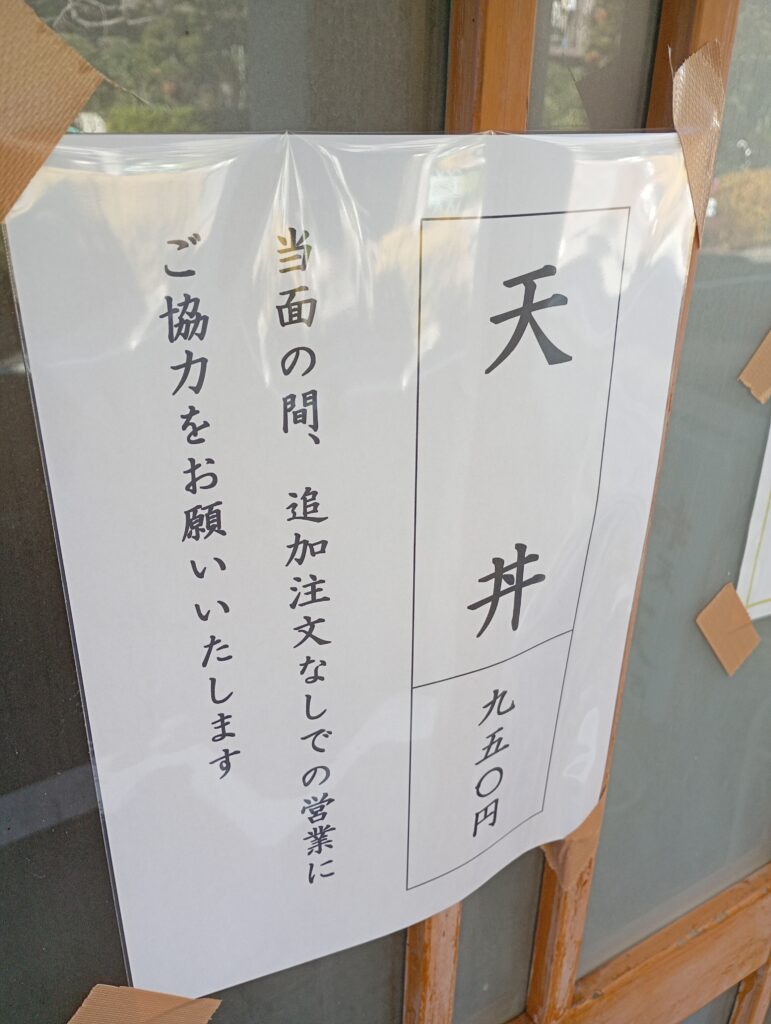 天丼
九五〇円
当面の間、追加注文なしでの営業に
ご協力をお願いいたします